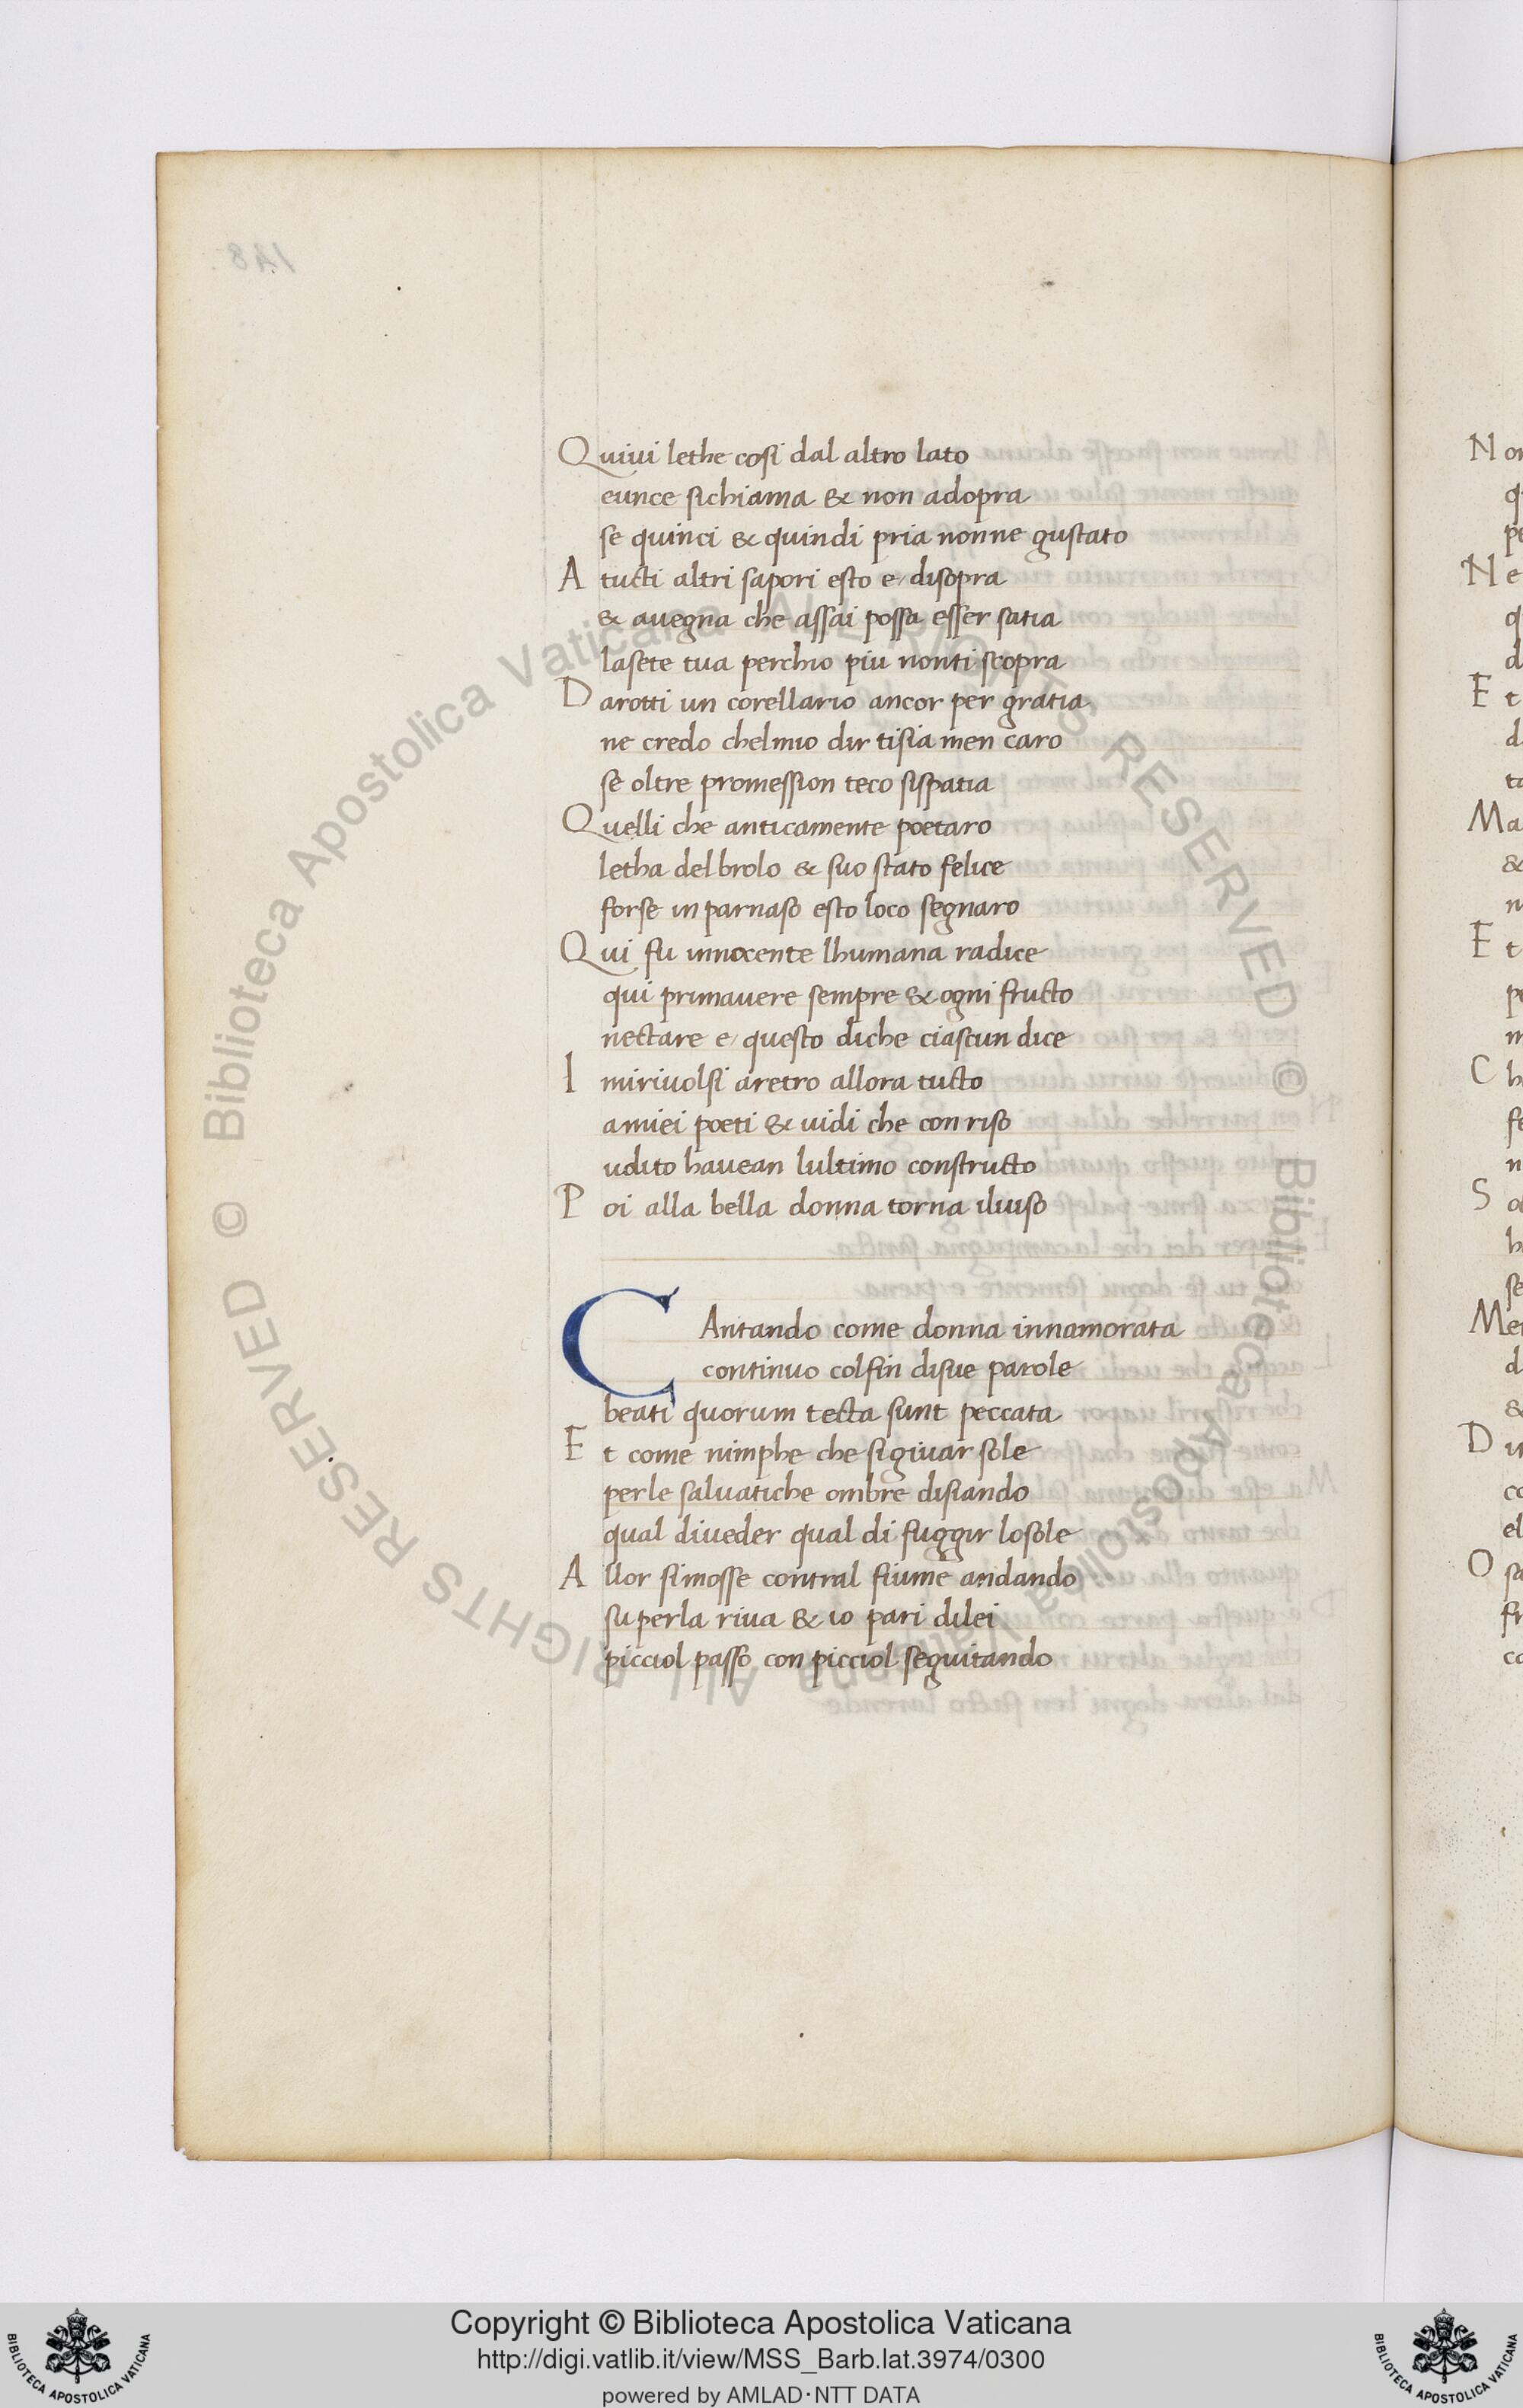 Quiui lethe cosi dal altro lato
eunce sichiama & non adopra
se quinci & quindi pria nonne gustato
A tucti altri sapori esto e disopra
& auegna che assai possa esser satia
lasete tua perchio piu nonti scopra
Darotti un corellario ancor per gratia
ne credo chelmio dir tisia men caro
se oltre promession teco sispatia
Quelli che anticamente poetaro
letha delbrolo & suo stato felice
forse inparnaso esto loco segnaro
Qui fu innocente lhumana radice
qui primauere sempre & ogni fructo
nectare e questo diche ciascun dice
I miriuolsi aretro allora tucto
amiei poeti & uidi che conriso
udito hauean lultimo constructo
Poi alla bella donna torna iluiso
CAntando come donna innamorata
continuo colfin disue parole
beati quorum tecta sunt peccata
Et come nimphe che sigiuar sole
perle saluatiche ombre disiando
qual diueder qual di fuggir losole
Allor simosse contral fiume andando
superla riua & io pari dilei
picciol passo con picciol seguitando
© Biblioteca Apostolica Vaticana ALL RIGHTS RESERVED © Biblioteca Apostolica Vaticana ALL RIGHTS RESERVED
Copyright © Biblioteca Apostolica Vaticana
http://digi.vatlib.it/view/MSS_Barb.lat.3974/0300
powered by AMLAD·NTT DATA
BIBLIOTECA APOSTOLICA VATICANA
BIBLIOTECA APOSTOLICA VATICANA